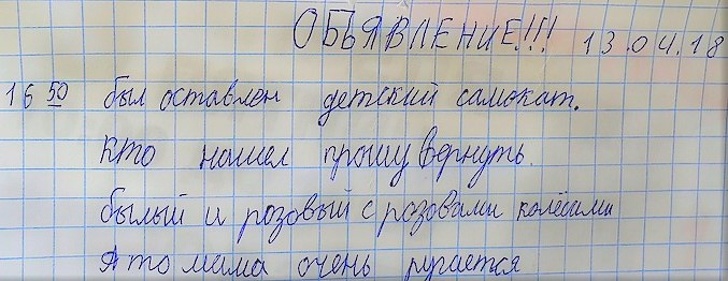 ОБЪЯВЛЕНИЕ!!! 13.04.18
16 50 был оставлен детский самокат.
Кто нашел прошу вернуть.
былый и розовый с розовами колёсами
А то мама очень ругается